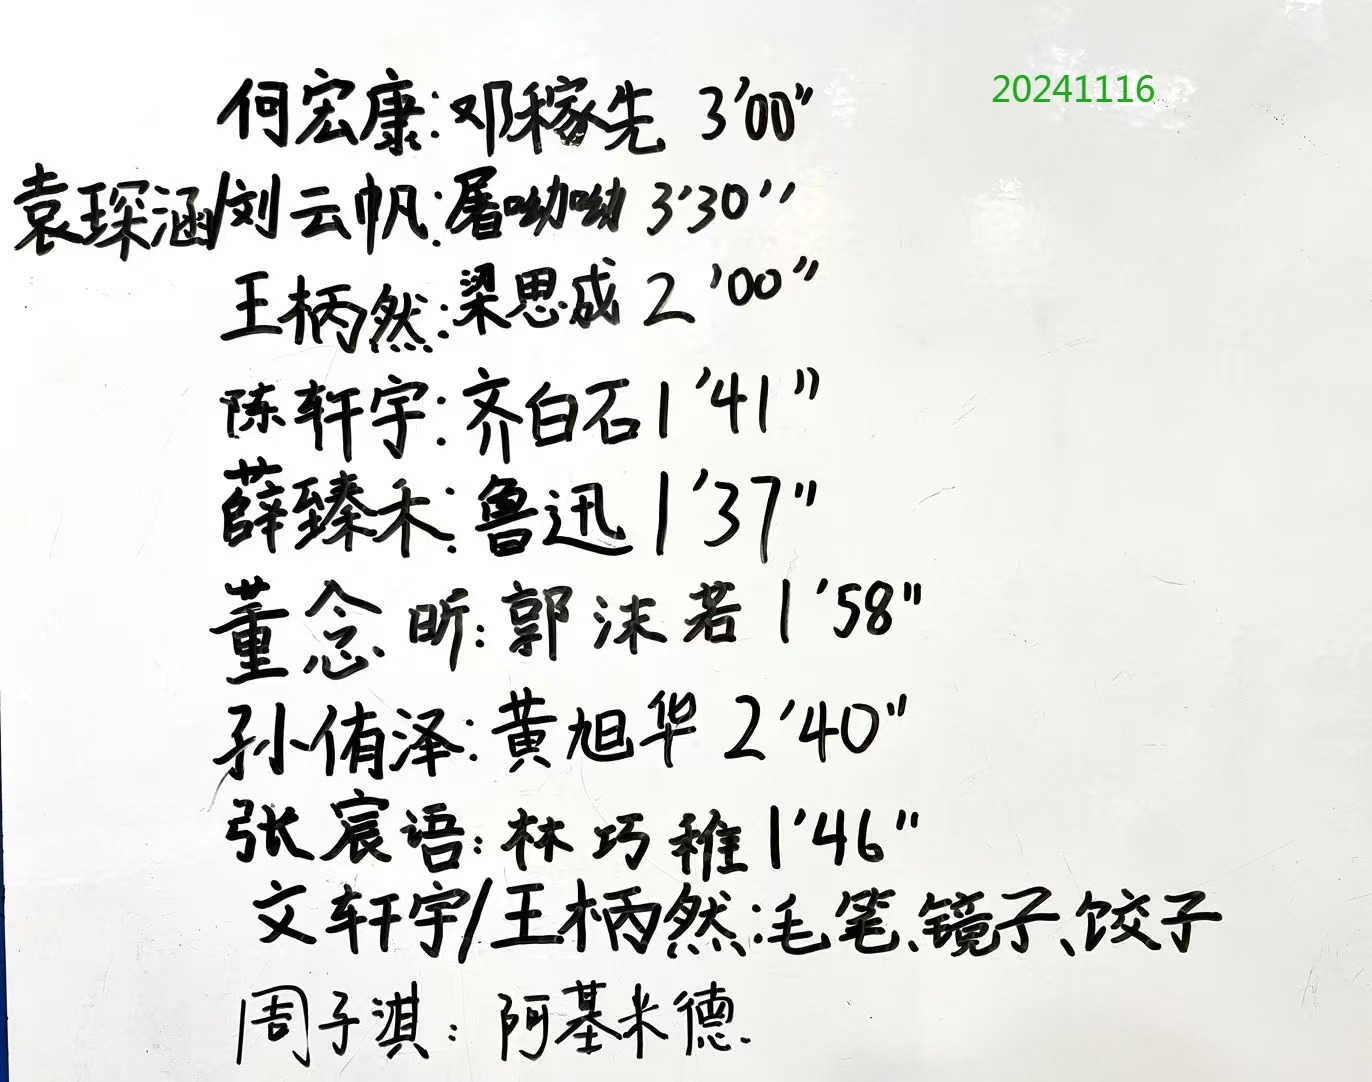 20241116
何宏康:邓稼先 3'00"
袁琛涵/刘云帆:屠呦呦 3'30''
王柄然:梁思成 2'00"
陈轩宇:齐白石 1'41"
薛臻禾:鲁迅 1'37"
董念昕:郭沫若 1'58"
孙侑泽:黄旭华 2'40"
张宸语:林巧稚 1'46"
文轩宇/王柄然:毛笔、镜子、饺子
周子淇:阿基米德.